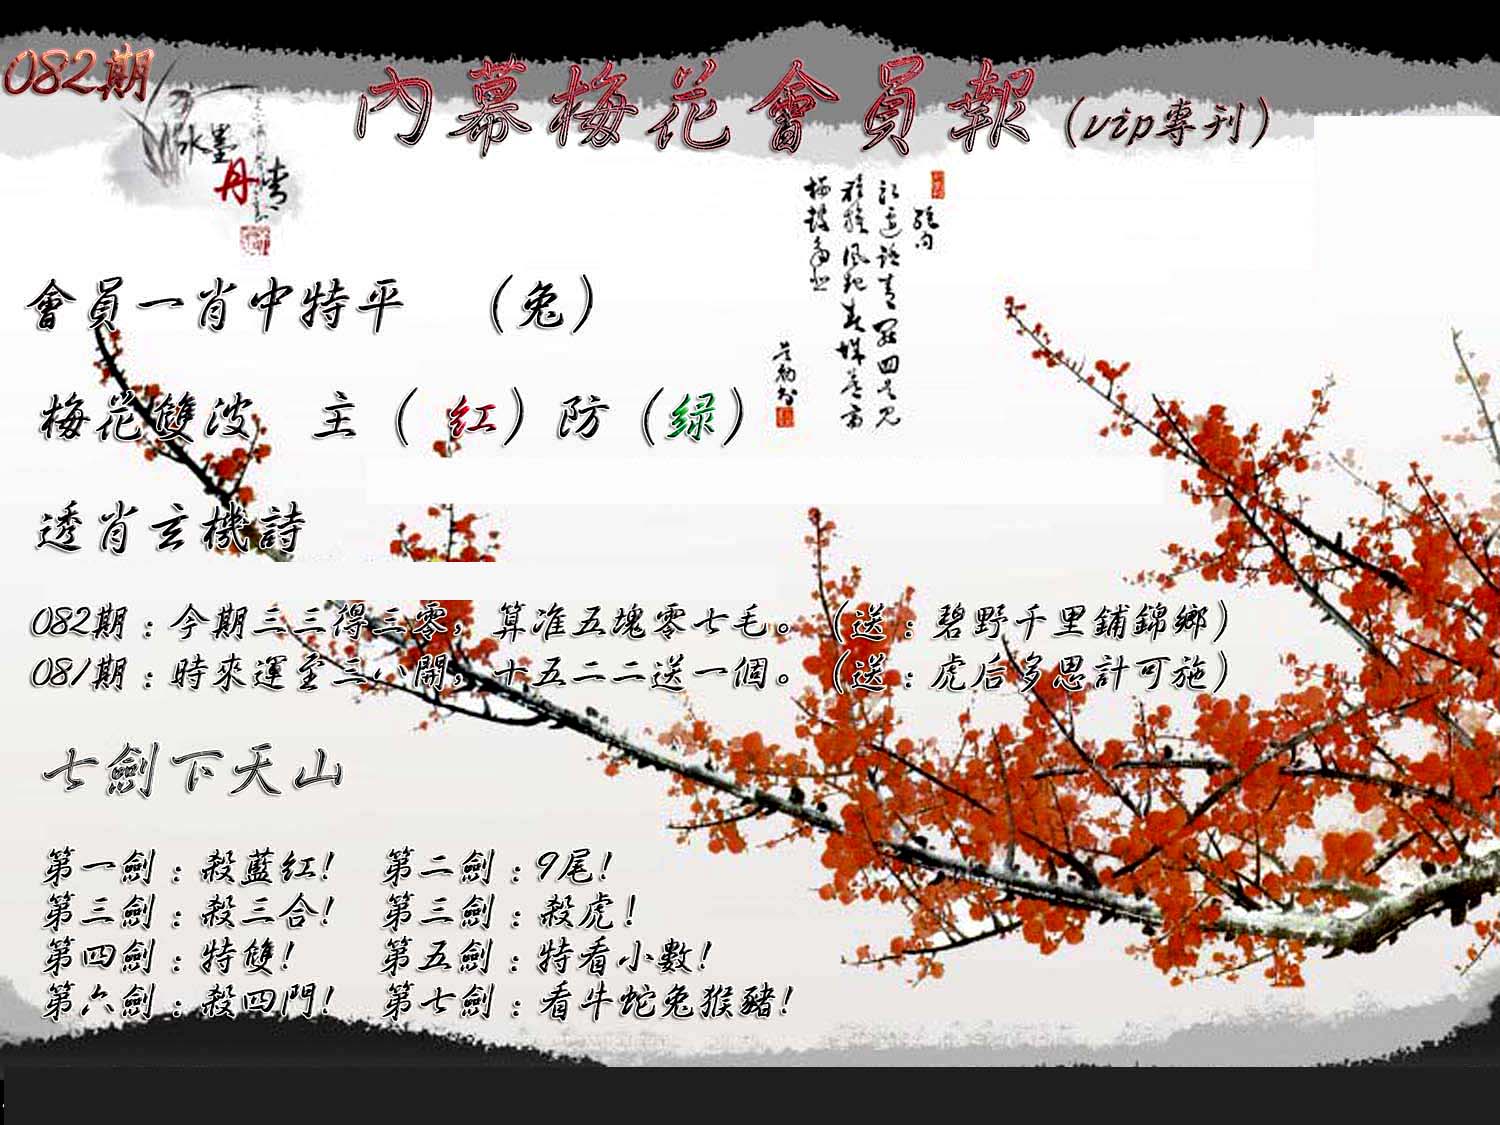 082期
內幕梅花會員報（vip專刊）
水墨
丹青
會員一肖中特平　（兔）
梅花雙波　主（ 紅）防（绿）
透肖玄機詩
082期：今期三三得三零，算准五塊零七毛。（送：碧野千里鋪錦鄉）
081期：時來運至三八開，十五二二送一個。（送：虎后多思計可施）
七劍下天山
第一劍：殺藍紅！　第二劍：9尾！
第三劍：殺三合！　第三劍：殺虎！
第四劍：特雙！　第五劍：特看小數！
第六劍：殺四門！　第七劍：看牛蛇兔猴豬！